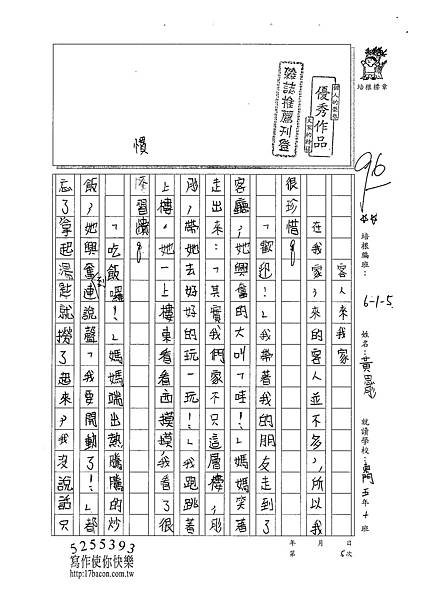 客人來我家
在我家，來的客人並不多，所以我
很珍惜。
「歡迎！」我帶著我的朋友走到了
客廳，她興奮的大叫「哇！」媽媽笑著
走出來：「其實我們家不只這層樓，彤
彤，帶她去好好的玩一玩！」我跳跳著
上樓，她一上樓東看看西摸摸，我看了很
不習慣。
慣
「吃飯囉！」媽媽端出熱騰騰的炒
飯，她興奮到連說聲「我要開動了！」都
忘了拿起湯匙就撈了起來，我沒說話只
優秀作品
雜誌推薦刊登
培根標章
96
培根編班：
6-1-5
姓名：
黃
就讀學校：
五年
班
年　月　日
第　6次
5255393
寫作使你快樂
http://17bacon.com.tw